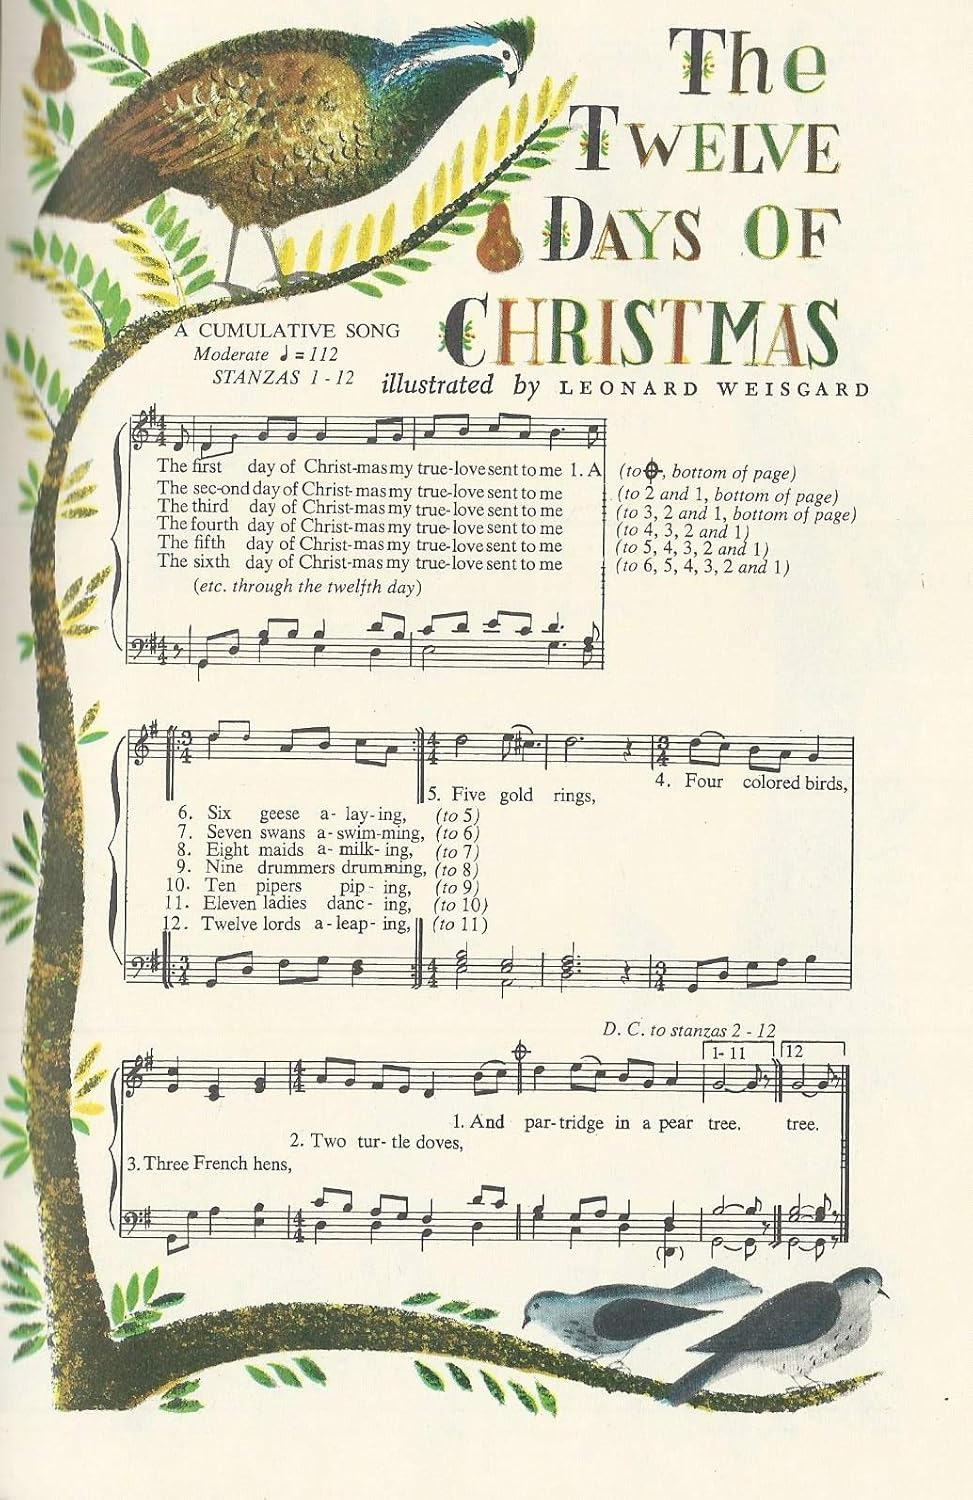 The
TWELVE
DAYS OF
CHRISTMAS
A CUMULATIVE SONG
Moderate ♩ = 112
STANZAS 1 - 12
illustrated by LEONARD WEISGARD
The first day of Christ-mas my true-love sent to me 1. A (to 𝄌, bottom of page)
The sec-ond day of Christ-mas my true-love sent to me (to 2 and 1, bottom of page)
The third day of Christ-mas my true-love sent to me (to 3, 2 and 1, bottom of page)
The fourth day of Christ-mas my true-love sent to me (to 4, 3, 2 and 1)
The fifth day of Christ-mas my true-love sent to me (to 5, 4, 3, 2 and 1)
The sixth day of Christ-mas my true-love sent to me (to 6, 5, 4, 3, 2 and 1)
(etc. through the twelfth day)
4. Four colored birds,
5. Five gold rings,
6. Six geese a- lay- ing, (to 5)
7. Seven swans a- swim- ming, (to 6)
8. Eight maids a- milk- ing, (to 7)
9. Nine drummers drumming, (to 8)
10. Ten pipers pip - ing, (to 9)
11. Eleven ladies danc - ing, (to 10)
12. Twelve lords a - leap - ing, (to 11)
D. C. to stanzas 2 - 12
1- 11 12
1. And par-tridge in a pear tree. tree.
2. Two tur- tle doves,
3. Three French hens,